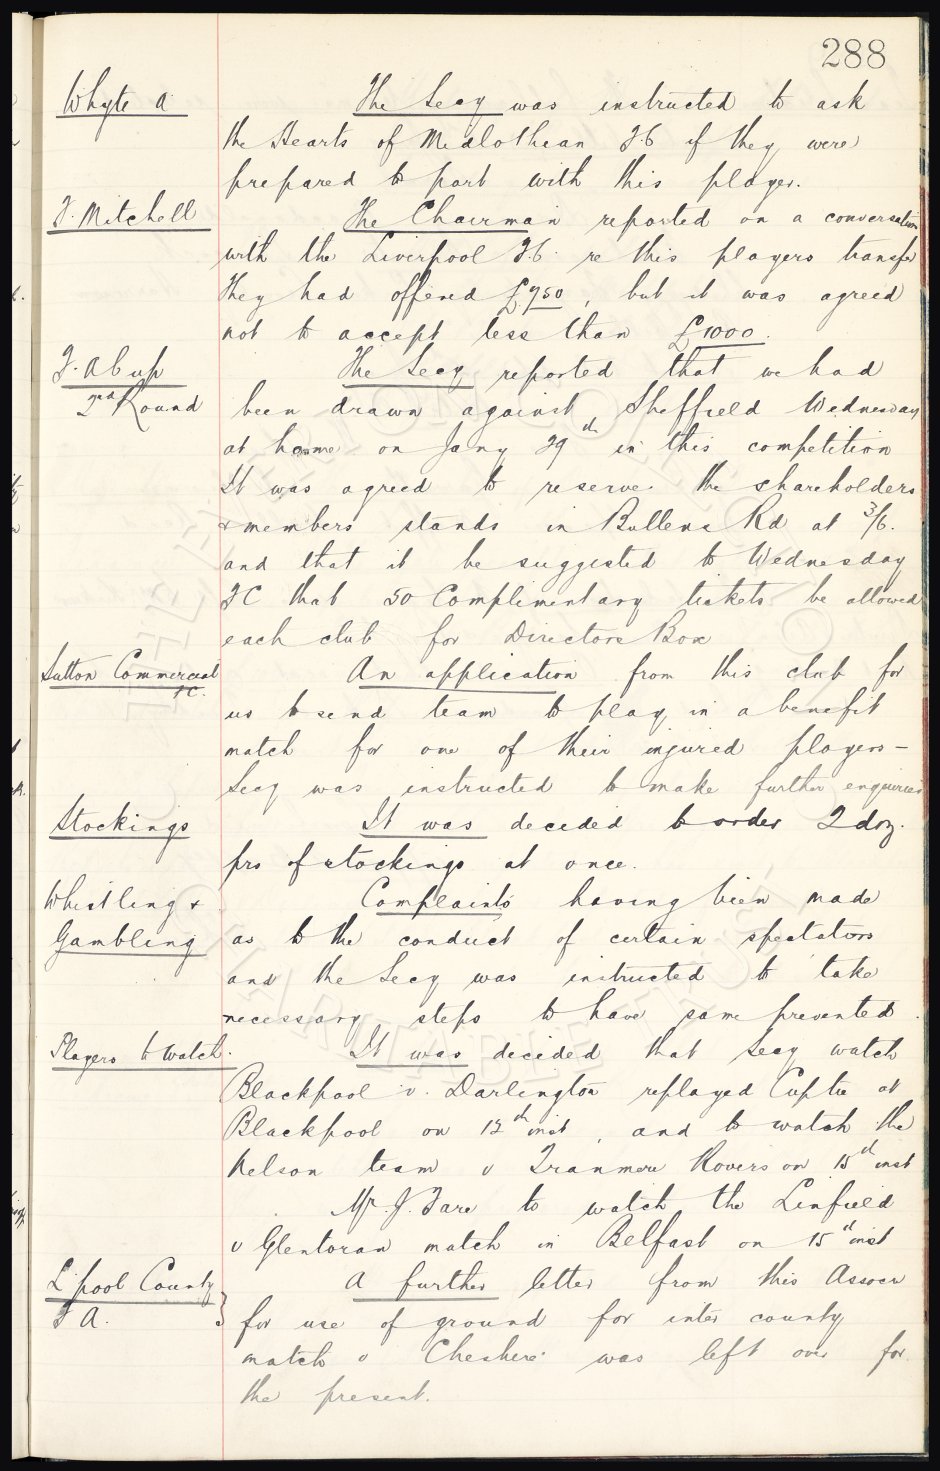 288
Whyte A. The Secy was instructed to ask
the Hearts of Midlothian F.C if they were
prepared to part with this player.
F. Mitchell The Chairman reported on a conversation
with the Liverpool F.C. re this players transfer
They had offered £750, but it was agreed
not to accept less than £1000.
F.A Cup The Secy reported that we had
2nd Round been drawn against Sheffield Wednesday
at home on Jany 29th in this competition
It was agreed to reserve the shareholders
& members stands in Bullens Rd at 3/6.
and that it be suggested to Wednesday
FC that 50 Complimentary tickets be allowed
each club for Directors Box
Sutton Commercial An application from this club for
FC. us to send team to play in a benefit
match for one of their injured players –
Secy was instructed to make further enquiries
Stockings It was decided to order 2 doz.
prs of stockings at once.
Whistling & Complaints having been made
Gambling as to the conduct of certain spectators
and the Secy was instructed to take
necessary steps to have same prevented.
Players to watch. It was decided that Secy watch
Blackpool v. Darlington replayed Cuptie at
Blackpool on 12th inst, and to watch the
Nelson team v Tranmere Rovers on 15th inst
Mr. J. Fare to watch the Linfield
v Glentoran match in Belfast on 15th inst
L'pool County A further letter from this Assocn
F A. for use of ground for inter county
match v Cheshire was left over for
the present.